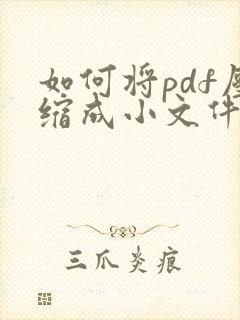 如何将pdf压
缩成小文件
三爪炎痕